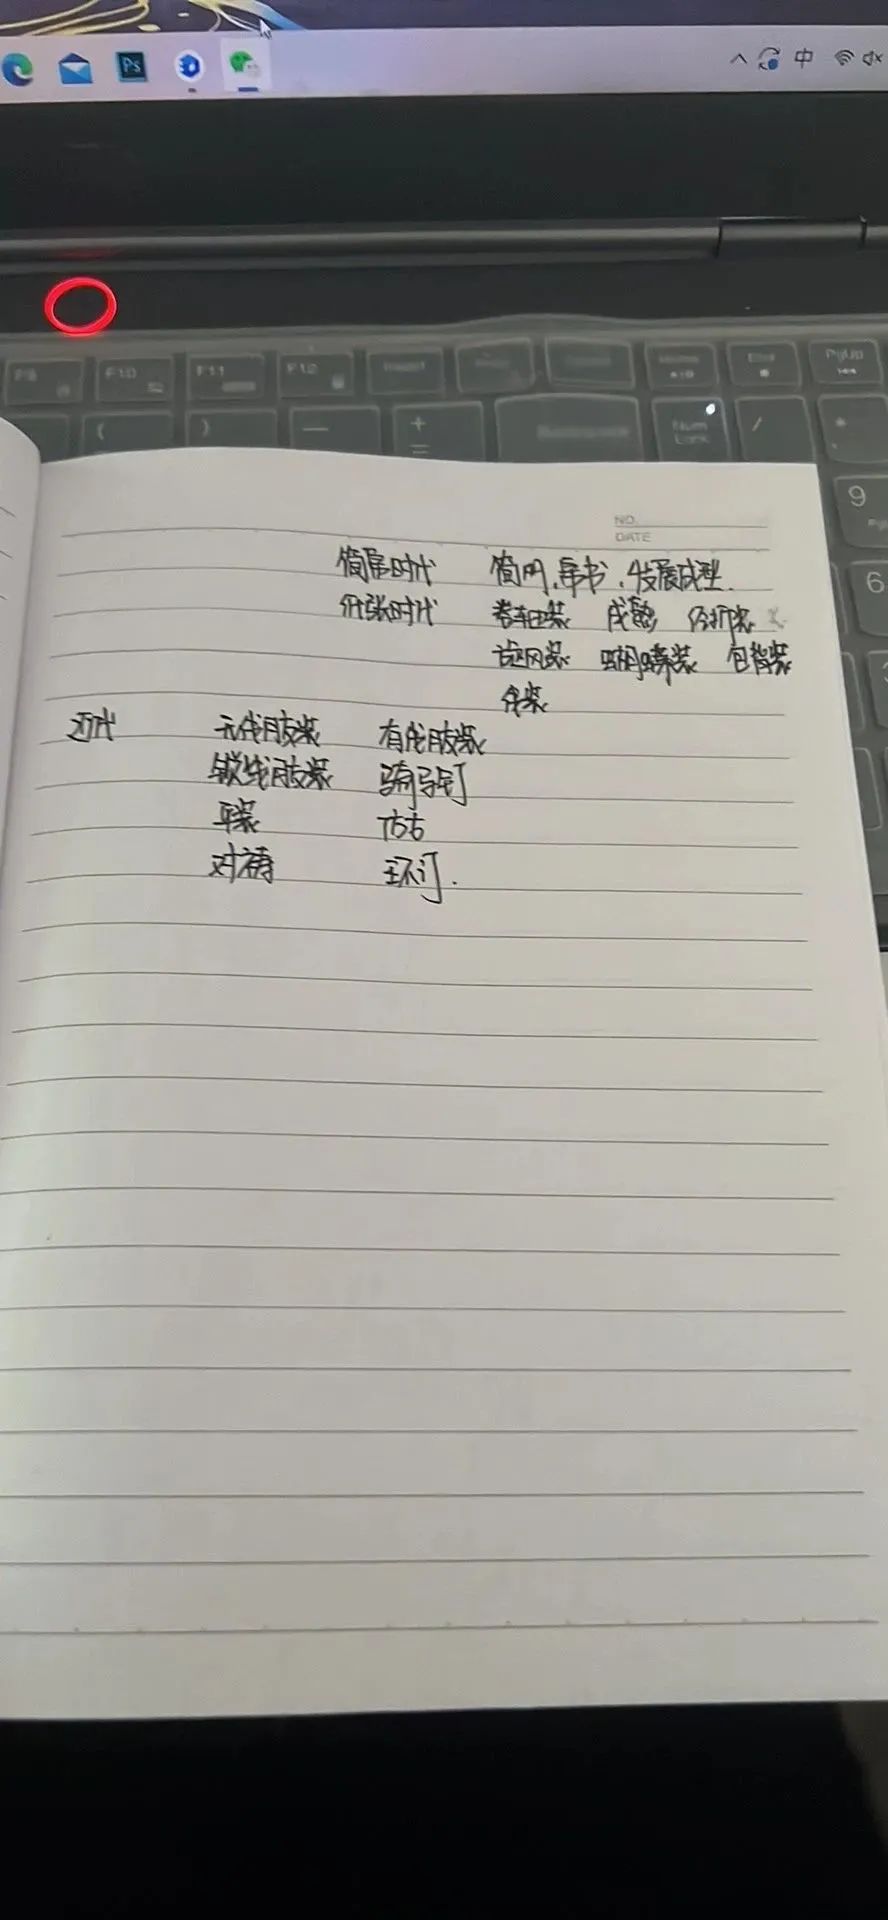 Ps
中
F9
F10
F11
F12
Insert
End
PgUp
(
)
+
=
Num
Lock
/
*
9
6
NO.
DATE
简帛时代 简冊、帛书、发展成型.
纸张时代 卷轴装 成熟 经折装
旋风装 蝴蝶装 包背装
线装
近代 无线胶装 有线胶装
锁线胶装 骑马钉
平装
对裱 环订.